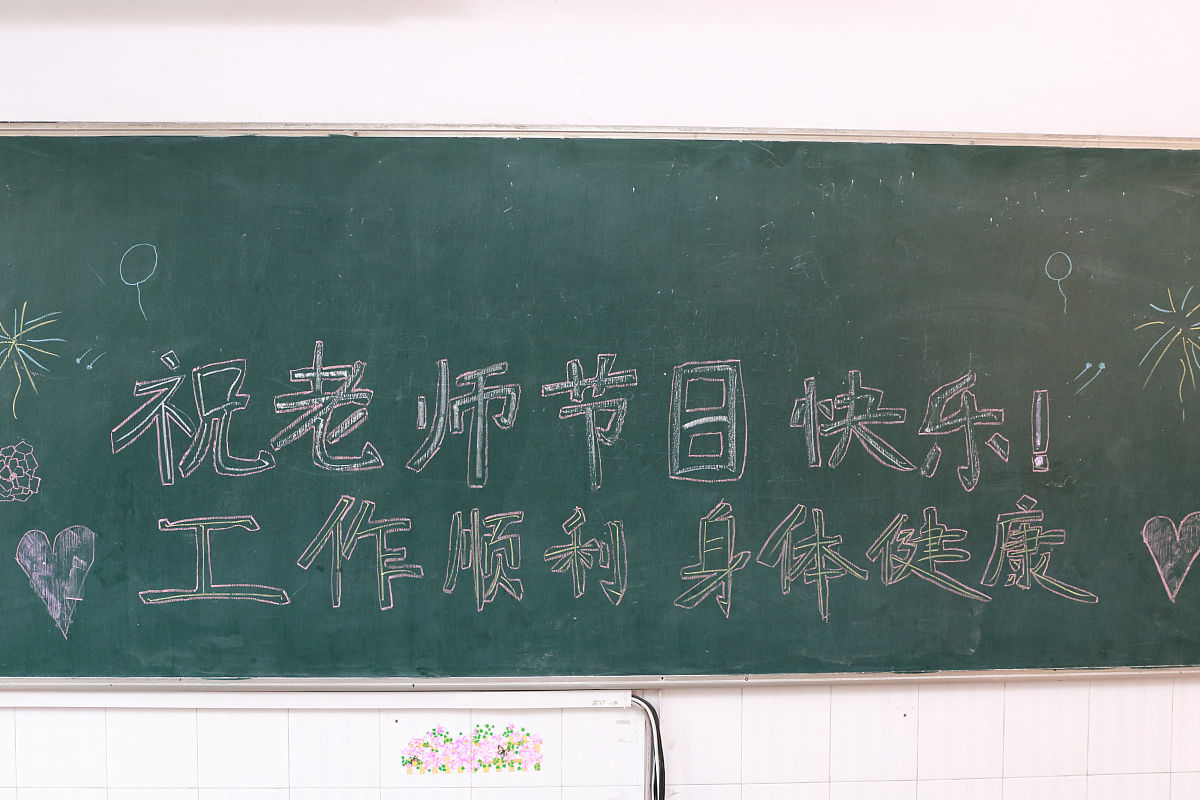 祝老师节日快乐!
工作顺利 身体健康